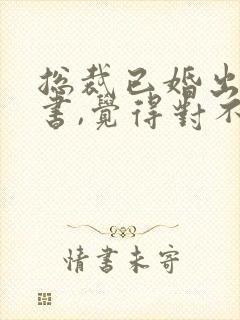 总裁已婚出
書,覺得對不
情書未寄